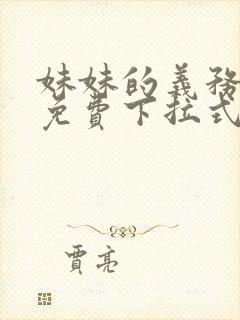 妹妹的義務
免費下拉式
賈亮